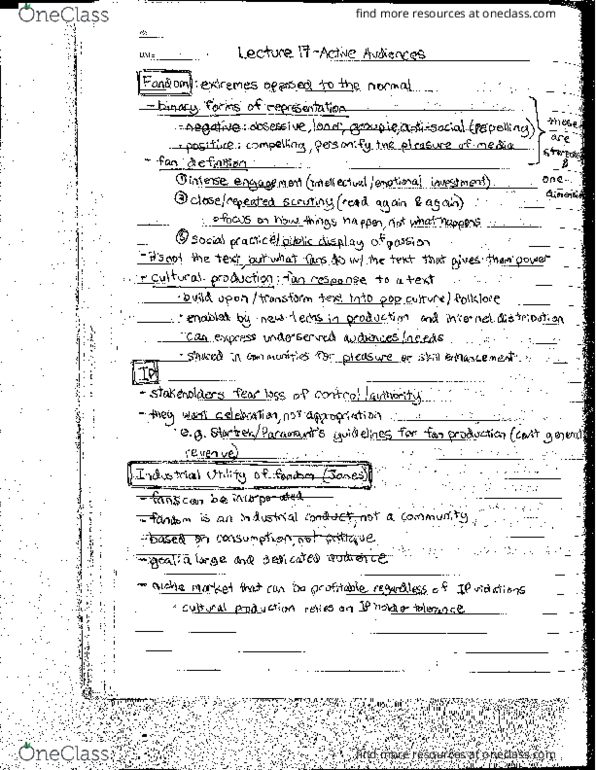 OneClass
find more resources at oneclass.com
Lecture 17 - Active Audiences
Fandom: extremes opposed to the normal
- binary forms of representation
- negative: obsessive, loner, groupie, anti-social (repelling)
- positive: compelling, personify the pleasure of media
these are &
one-
- fan definition
① intense engagement (intellectual/emotional investment)
② close/repeated scrutiny (read again & again)
focus on how things happen, not what happens
③ social practice/public display of passion
- it's not the text, but what fans do w/ the text that gives them power
- cultural production: fan response to a text
· build upon/transform text into pop culture/folklore
· enabled by new techs in production and internet distribution
· can express underserved audiences/needs
· shared in communities for pleasure or skill enhancement
IP
- stakeholders fear loss of control/authority
- they want celebration, not appropriation
· e.g. Startrek/Paramount's guidelines for fan production (can't general
revenue)
Industrial Utility of fandom (Jones)
- fans can be incorporated
- fandom is an industrial conduct, not a community
- based on consumption, not critique
- goal: a large and dedicated audience
- niche market that can be profitable regardless of IP violations
· cultural production relies on IP holder tolerance
OneClass
find more resources at oneclass.com